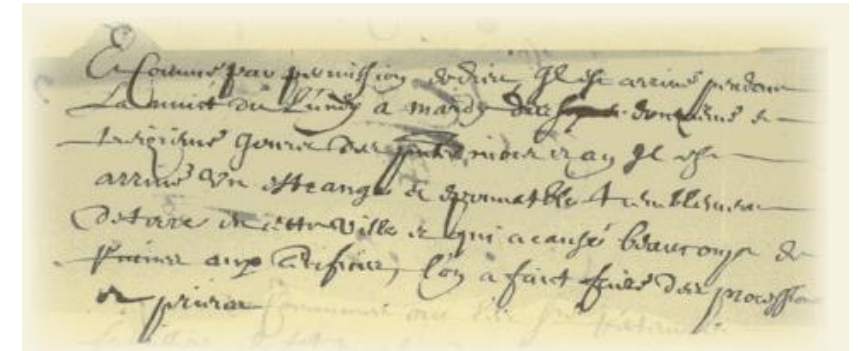 Et Comme par permission divine Il est arrivé pendant
La nuict du Lundy a mardy douzieme et
treizieme Jour du mois et an Il est
arrivé Un estrange et epouvantable tremblement
de terre en cette Ville et qui a causé beaucoup de
Ruines aux edifices, l'on a faict faire des processions
et prieres